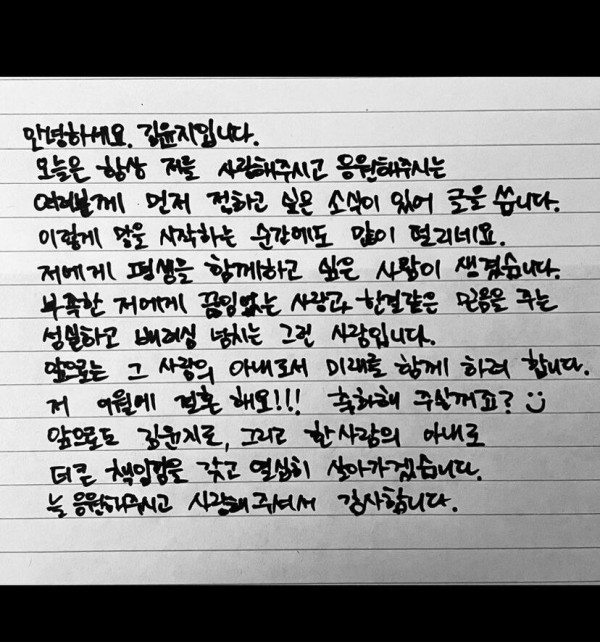 안녕하세요. 김윤지입니다.
오늘은 항상 저를 사랑해주시고 응원해주시는
여러분께 먼저 전하고 싶은 소식이 있어 글을 씁니다.
이렇게 말을 시작하는 순간에도 많이 떨리네요.
저에게 평생을 함께하고 싶은 사람이 생겼습니다.
부족한 저에게 끊임없는 사랑과, 한결같은 믿음을 주는
성실하고 배려심 넘치는 그런 사람입니다.
앞으로는 그 사람의 아내로서 미래를 함께 하려 합니다.
저 9월에 결혼 해요!!! 축하해 주실꺼죠?
앞으로도 김윤지로, 그리고 한사람의 아내로
더큰 책임감을 갖고 열심히 살아가겠습니다.
늘 응원해주시고 사랑해주셔서 감사합니다.